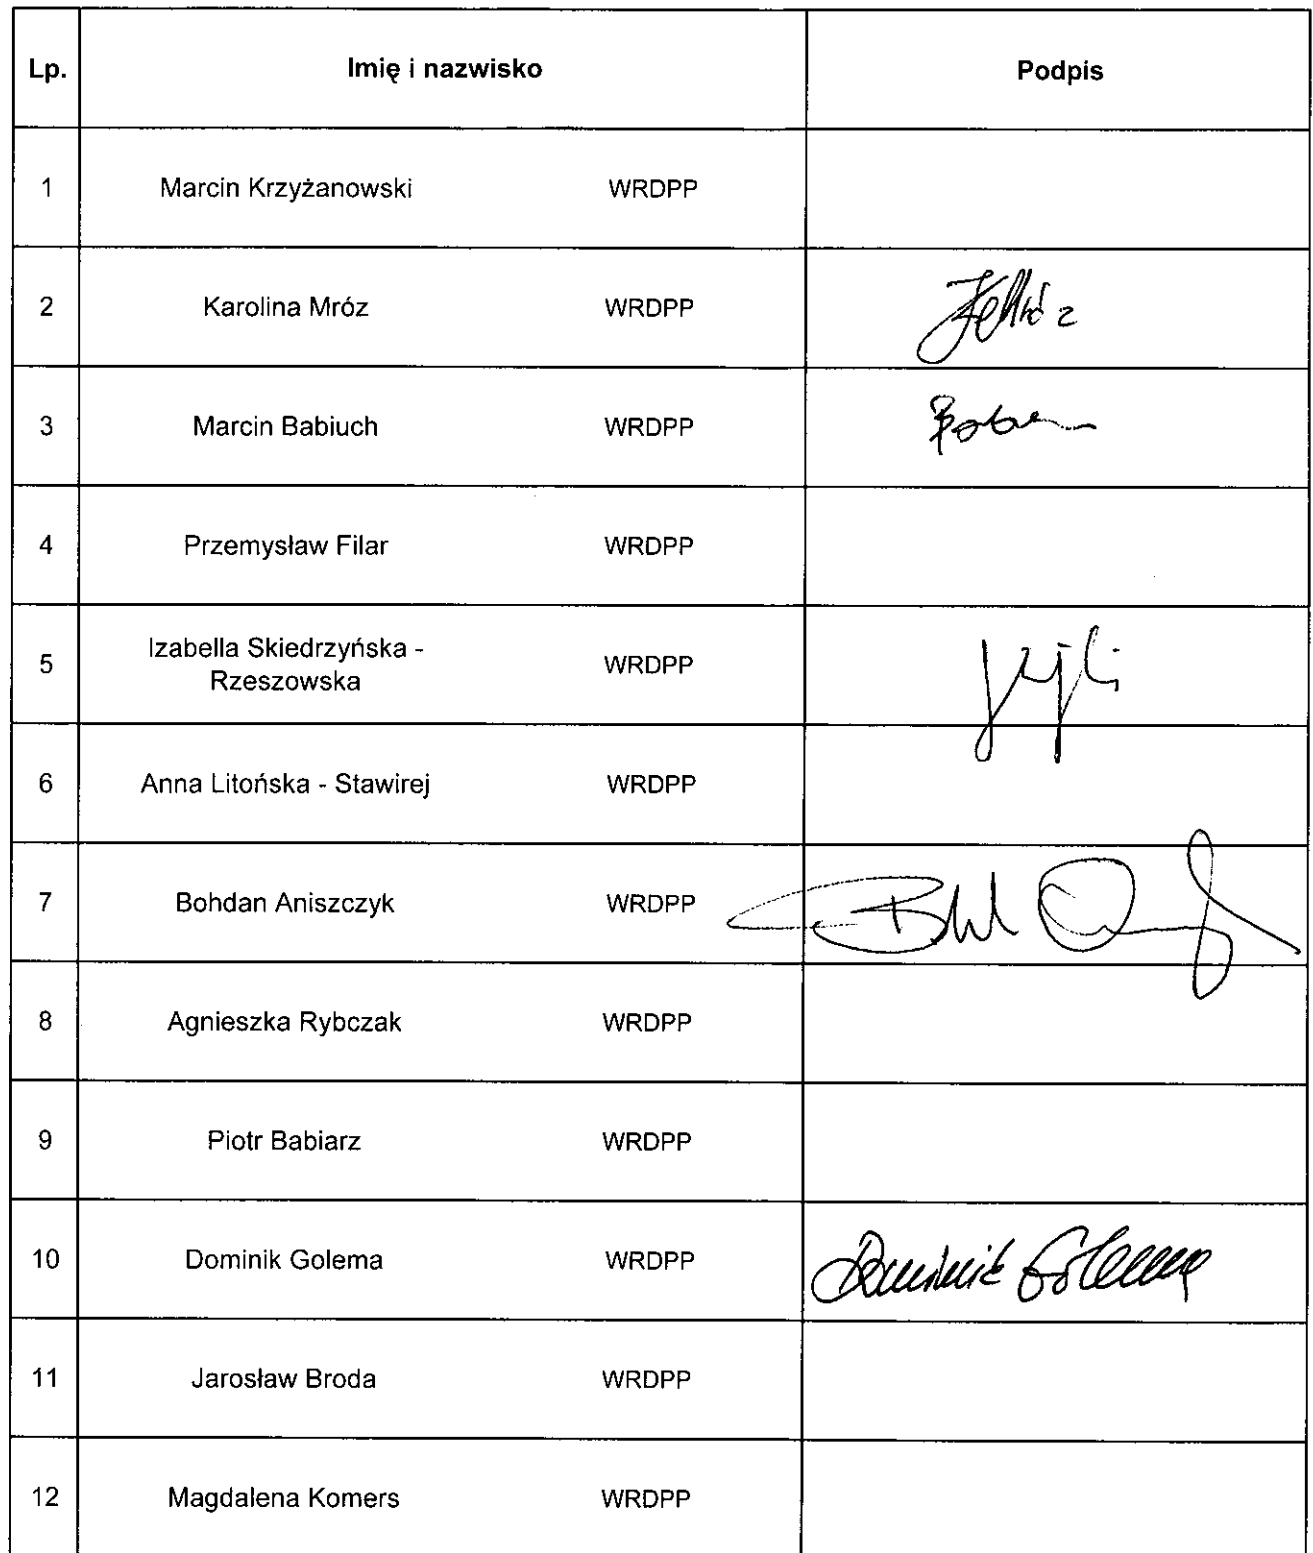 Lp. Imię i nazwisko Podpis
1 Marcin Krzyżanowski WRDPP
2 Karolina Mróz WRDPP KMróz
3 Marcin Babiuch WRDPP
4 Przemysław Filar WRDPP
5 Izabella Skiedrzyńska -
Rzeszowska WRDPP
6 Anna Litońska - Stawirej WRDPP
7 Bohdan Aniszczyk WRDPP
8 Agnieszka Rybczak WRDPP
9 Piotr Babiarz WRDPP
10 Dominik Golema WRDPP Dominik Golema
11 Jarosław Broda WRDPP
12 Magdalena Komers WRDPP